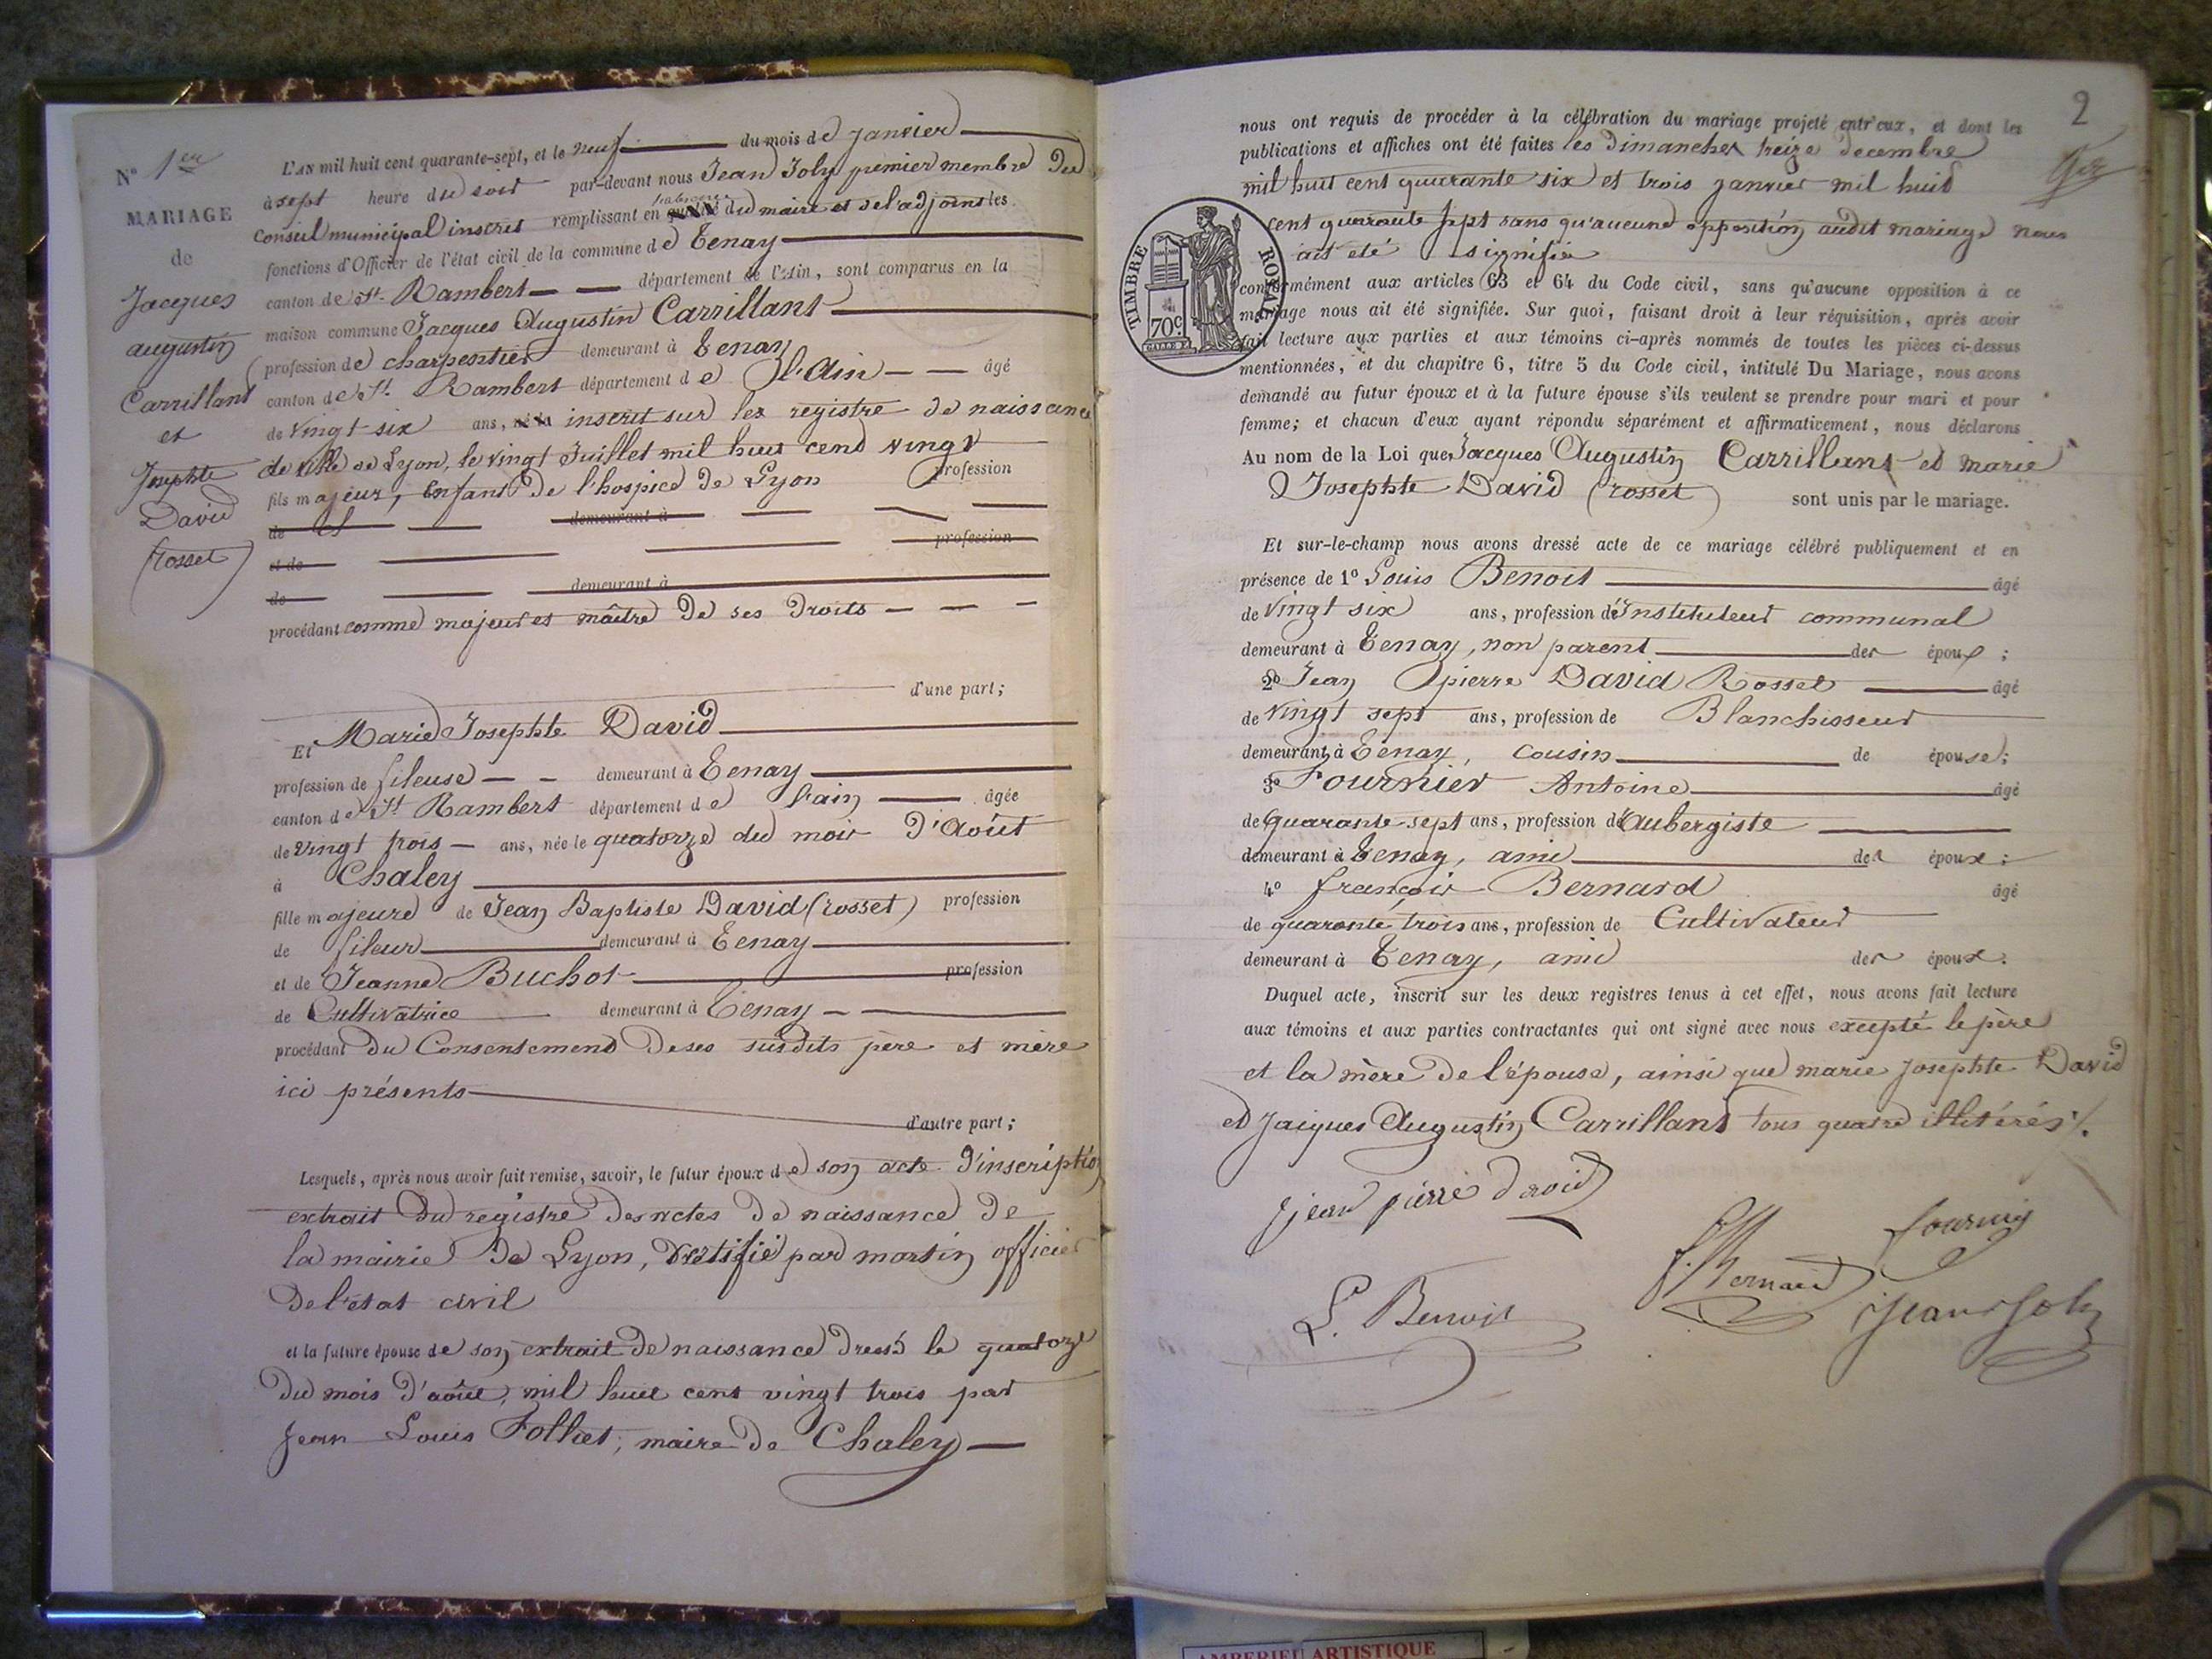 N° 1er
MARIAGE
de
Jacques
augustin
Carrillant
et
Josephte
David
(rosset)
L'AN mil huit cent quarante-sept, et le neuf du mois de Janvier
à sept heure du soir par-devant nous Jean Joly premier membre du
conseil municipal inscrit remplissant en du maire et de l'adjoint les
fonctions d'Officier de l'état civil de la commune de Tenay
canton de St. Rambert département de l'Ain, sont comparus en la
maison commune Jacques Augustin Carrillant
profession de charpentier demeurant à Tenay
canton de St. Rambert département de l'Ain âgé
de vingt six ans, né le inscrit sur les registre de naissance
de ville de Lyon, le vingt Juillet mil huit cend vingt
fils majeur, Enfant de l'hospice de Lyon profession
de et demeurant à
et de profession
de demeurant à
procédant comme majeur et maître de ses droits
d'une part;
Et Marie Josephte David
profession de fileuse demeurant à Tenay
canton de St Rambert département de l'ain âgée
de vingt trois ans, née le quatorze du mois d'Août
à Chaley
fille majeure de Jean Baptiste David (rosset) profession
de fileur demeurant à Tenay
et de Jeanne Buchot profession
de Cultivatrice demeurant à Tenay
procédant du Consentement de ses susdits père et mère
ici présents
d'autre part;
Lesquels, après nous avoir fait remise, savoir, le futur époux de son acte d'inscription
extrait du registre des actes de naissance de
la mairie de Lyon, par martin officier
de l'état civil
et la future épouse de son extrait de naissance dressé le quatorze
du mois d'août, mil huit cent vingt trois par
Jean Louis Folliet, maire de Chaley
2
nous ont requis de procéder à la célébration du mariage projeté entr'eux, et dont les
publications et affiches ont été faites les dimanches treize decembre
mil huit cent quarante six et trois janvier mil huit
cent quarante sept sans qu'aucune opposition audit mariage nous
ait été signifié
conformément aux articles 63 et 64 du Code civil, sans qu'aucune opposition à ce
mariage nous ait été signifiée. Sur quoi, faisant droit à leur réquisition, après avoir
fait lecture aux parties et aux témoins ci-après nommés de toutes les pièces ci-dessus
mentionnées, et du chapitre 6, titre 5 du Code civil, intitulé Du Mariage, nous avons
demandé au futur époux et à la future épouse s'ils veulent se prendre pour mari et pour
femme; et chacun d'eux ayant répondu séparément et affirmativement, nous déclarons
Au nom de la Loi que Jacques Augustin Carrillant et marie
Josephte David (rosset) sont unis par le mariage.
TIMBRE ROYAL
70c
Et sur-le-champ nous avons dressé acte de ce mariage célébré publiquement et en
présence de 1° Louis Benoit âgé
de vingt six ans, profession d'Instituteur communal
demeurant à Tenay, non parent des époux;
2° Jean pierre David Rosset âgé
de vingt sept ans, profession de Blanchisseur
demeurant à Tenay, cousin de épouse;
3° Fournier Antoine âgé
de quarante sept ans, profession d'Aubergiste
demeurant à Tenay, ami des époux;
4° françois Bernard âgé
de quarante trois ans, profession de Cultivateur
demeurant à Tenay, ami des époux.
Duquel acte, inscrit sur les deux registres tenus à cet effet, nous avons fait lecture
aux témoins et aux parties contractantes qui ont signé avec nous excepté le père
et la mère de l'épouse, ainsi que marie josephte David
et Jacques Augustin Carrillant tous quatre illitérés./.
jean pierre david
fournier
f. Bernard
L. Benoit
Jean Joly
AMBERIEU ARTISTIQUE